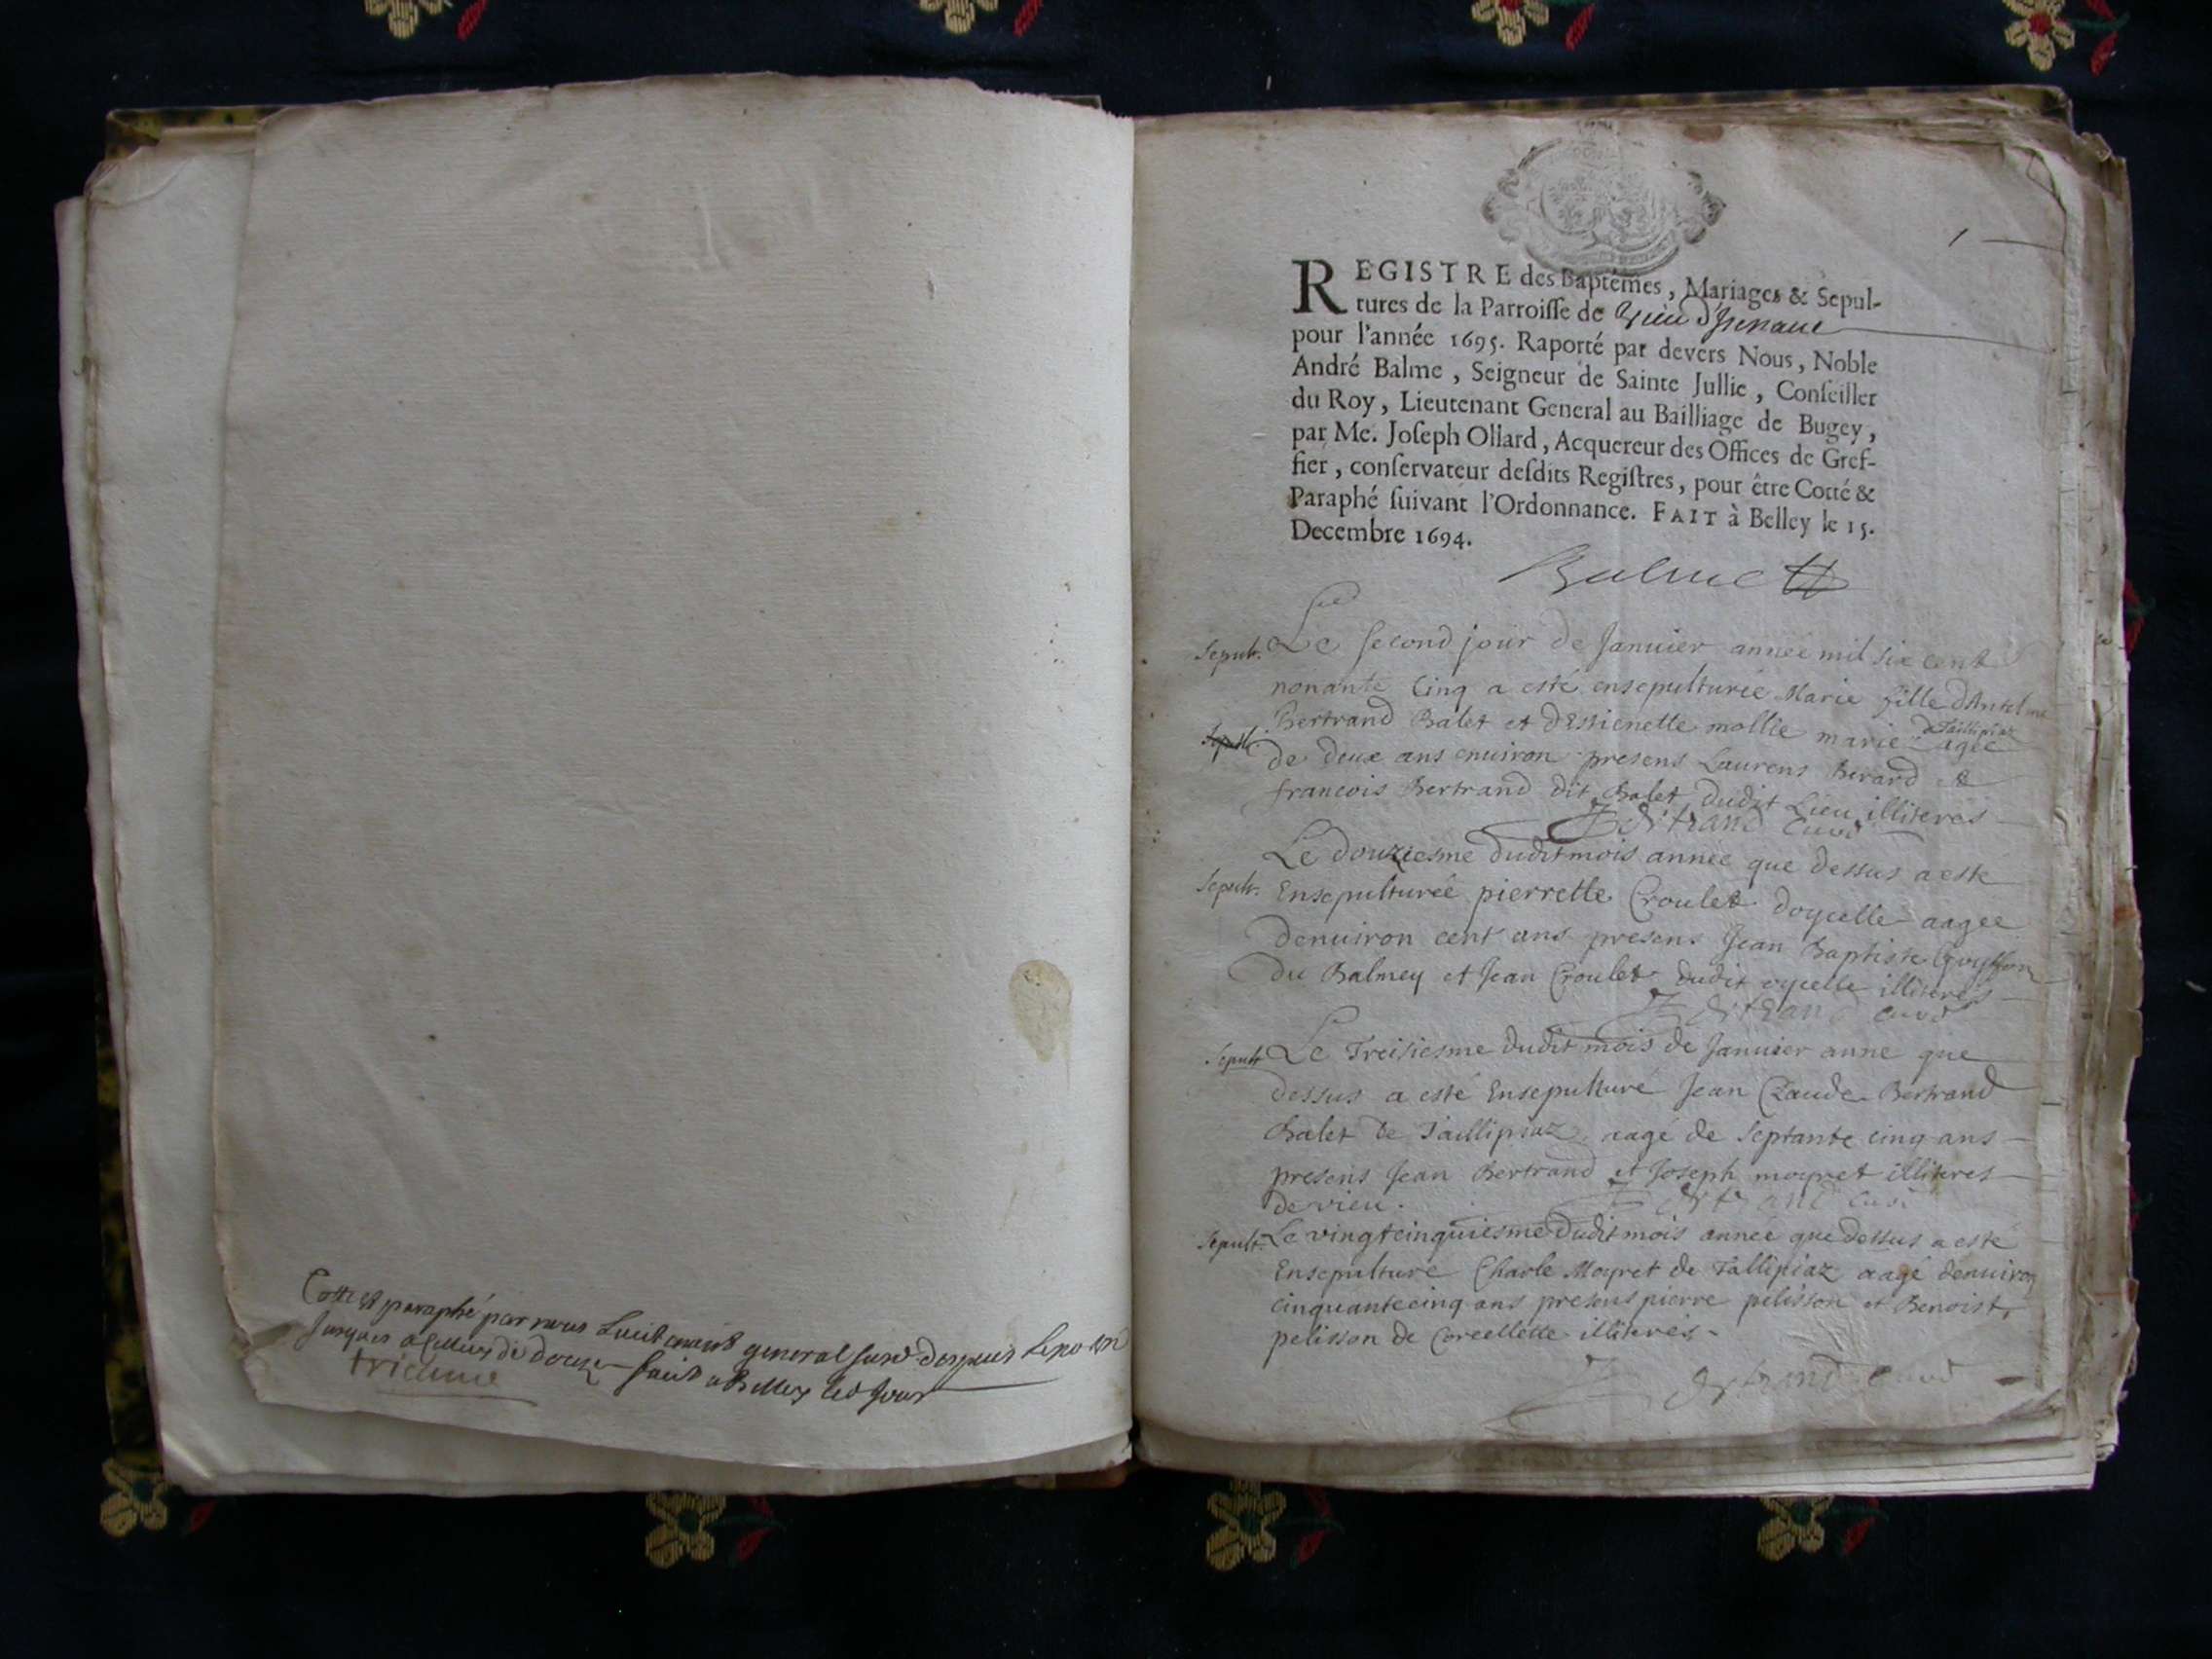 Cotté et paraphé par nous Lieutenant general susd. despuis le no. un
jusques a celluy de douze fait a Belley led jour
1
REGISTRE des Baptémes, Mariages & Sepul-
tures de la Parroisse de Vieu d'Izenave
pour l'année 1695. Raporté par devers Nous, Noble
André Balme, Seigneur de Sainte Jullie, Conseiller
du Roy, Lieutenant General au Bailliage de Bugey,
par Me. Joseph Ollard, Acquereur des Offices de Gref-
fier, conservateur desdits Registres, pour être Cotté &
Paraphé suivant l'Ordonnance. FAIT à Belley le 15.
Decembre 1694.
Balme
Sepult. Le second jour de Januier année mil six cent
nonante Cinq a esté ensepulturée Marie fille dAntelme
Bertrand Balet et dEstienette mollie marie de Taillipiaz agée
Sepult.
de deux ans enuiron presens Laurens Berard et
francois Bertrand dit Balet dudit Lieu illiteres
Bertrand Curé
Le douziesme dudit mois annee que dessus a este
Sepult. Ensepulturée pierrette Croulet doycelle aagee
denuiron cent ans presens Jean Baptiste
du Balmey et Jean Croulet dudit oycelle illiteres
Bertrand curé
Sepult. Le Treisiesme dudit mois de Januier anne que
dessus a esté Ensepulturé Jean Claude Bertrand
Balet de Taillipiaz aagé de septante cinq ans
presens Jean Bertrand et Joseph moyret illiteres
de vieu.
Bertrand curé
Sepult. Le vingtcinquiesme dudit mois année que dessus a esté
Ensepulture Charle Moyret de Tallipiaz aagé denuiron
cinquantecinq ans presens pierre pelisson et Benoist
pelisson de Corcellette illiterés.
Bertrand curé